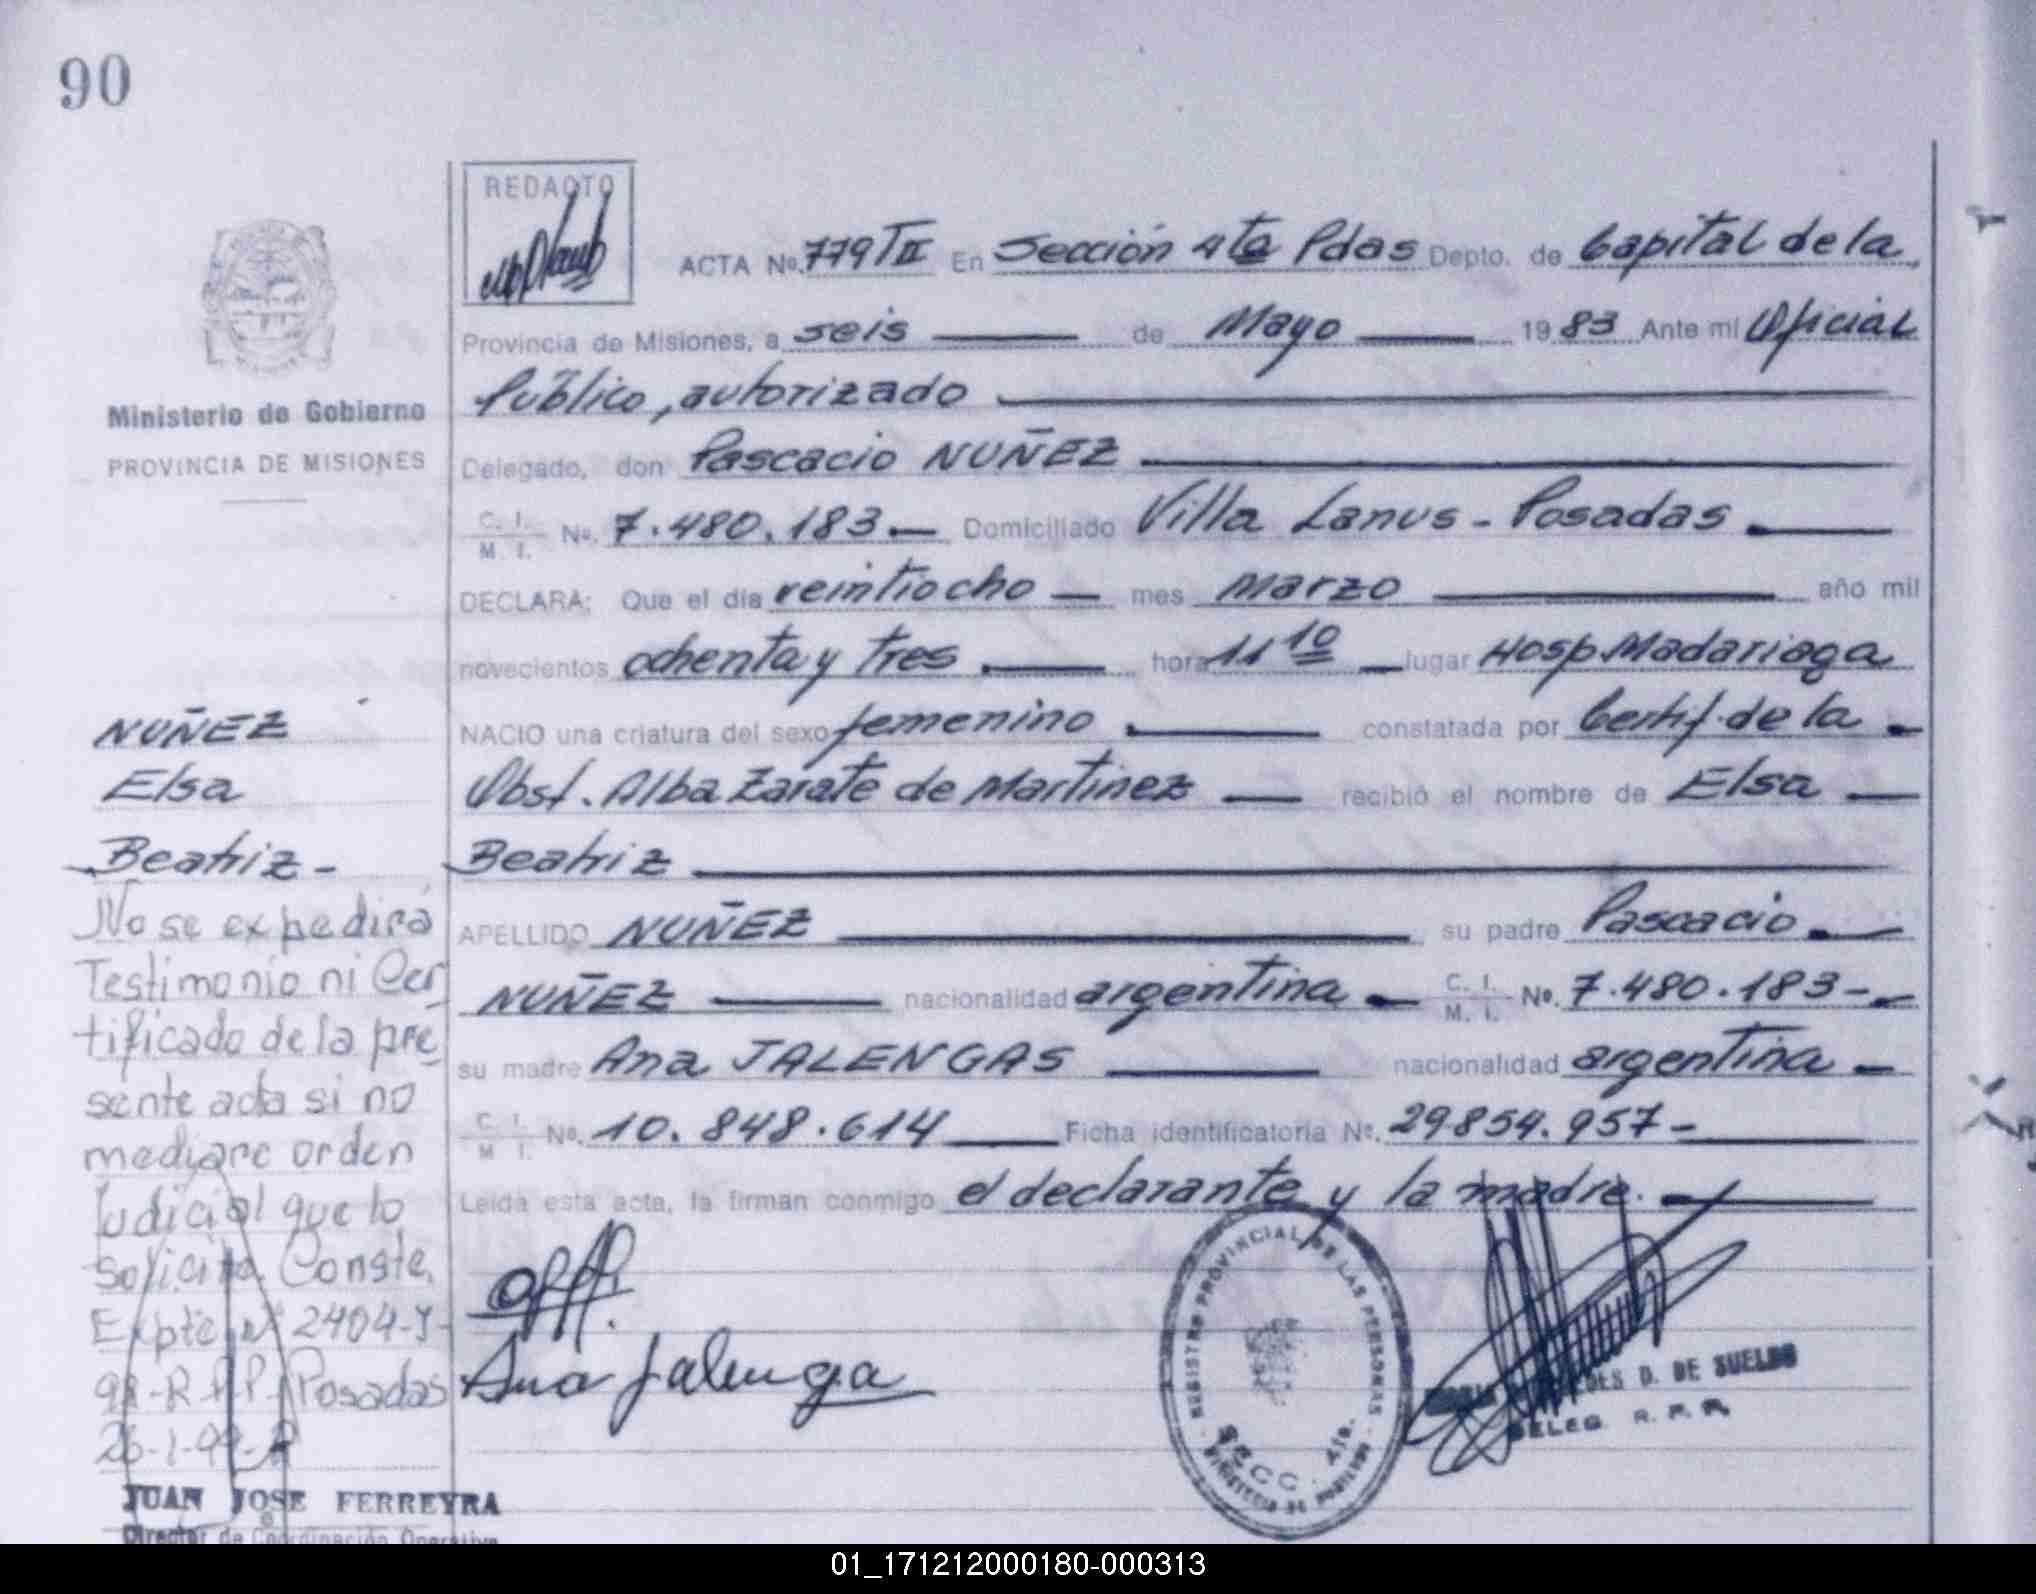 90
REDACTO
ACTA Nº 779 TII En Sección 4ta Pdas Depto. de Capital de la
Provincia de Misiones, a seis de Mayo 1983 Ante mí Oficial
Público, autorizado
Ministerio de Gobierno
PROVINCIA DE MISIONES
Delegado, don Pascacio NUÑEZ
C. I. M. I. Nº. 7.480.183.- Domiciliado Villa Lanus - Posadas
DECLARA: Que el día veintiocho mes Marzo año mil
novecientos ochenta y tres hora 11 10 lugar Hosp Madariaga
NACIO una criatura del sexo femenino constatada por Certif. de la
Obst. Alba Zarate de Martinez recibió el nombre de Elsa
Beatriz
APELLIDO NUÑEZ su padre Pascacio
NUÑEZ nacionalidad argentina C. I. M. I. Nº. 7.480.183-
su madre Ana JALENGAS nacionalidad argentina
C. I. M. I. Nº. 10.848.614 Ficha identificatoria Nº. 29854.957-
Leída esta acta, la firman conmigo el declarante y la madre.
NUÑEZ
Elsa
Beatriz-
No se expedirá
Testimonio ni Cer
tificado de la pre
sente acta si no
mediare orden
Judicial que lo
solicite. Conste.
Expte nº 2404-J-
99-R.P.P. Posadas
26-1-99-
JUAN JOSE FERREYRA
Director de Coordinación Operativa
Ana Jalenga
REGISTRO PROVINCIAL DE LAS PERSONAS
SECC. 4ta.
MINISTERIO DE GOBIERNO
D. DE SUELDO
DELEG. R. P. P.
01_171212000180-000313